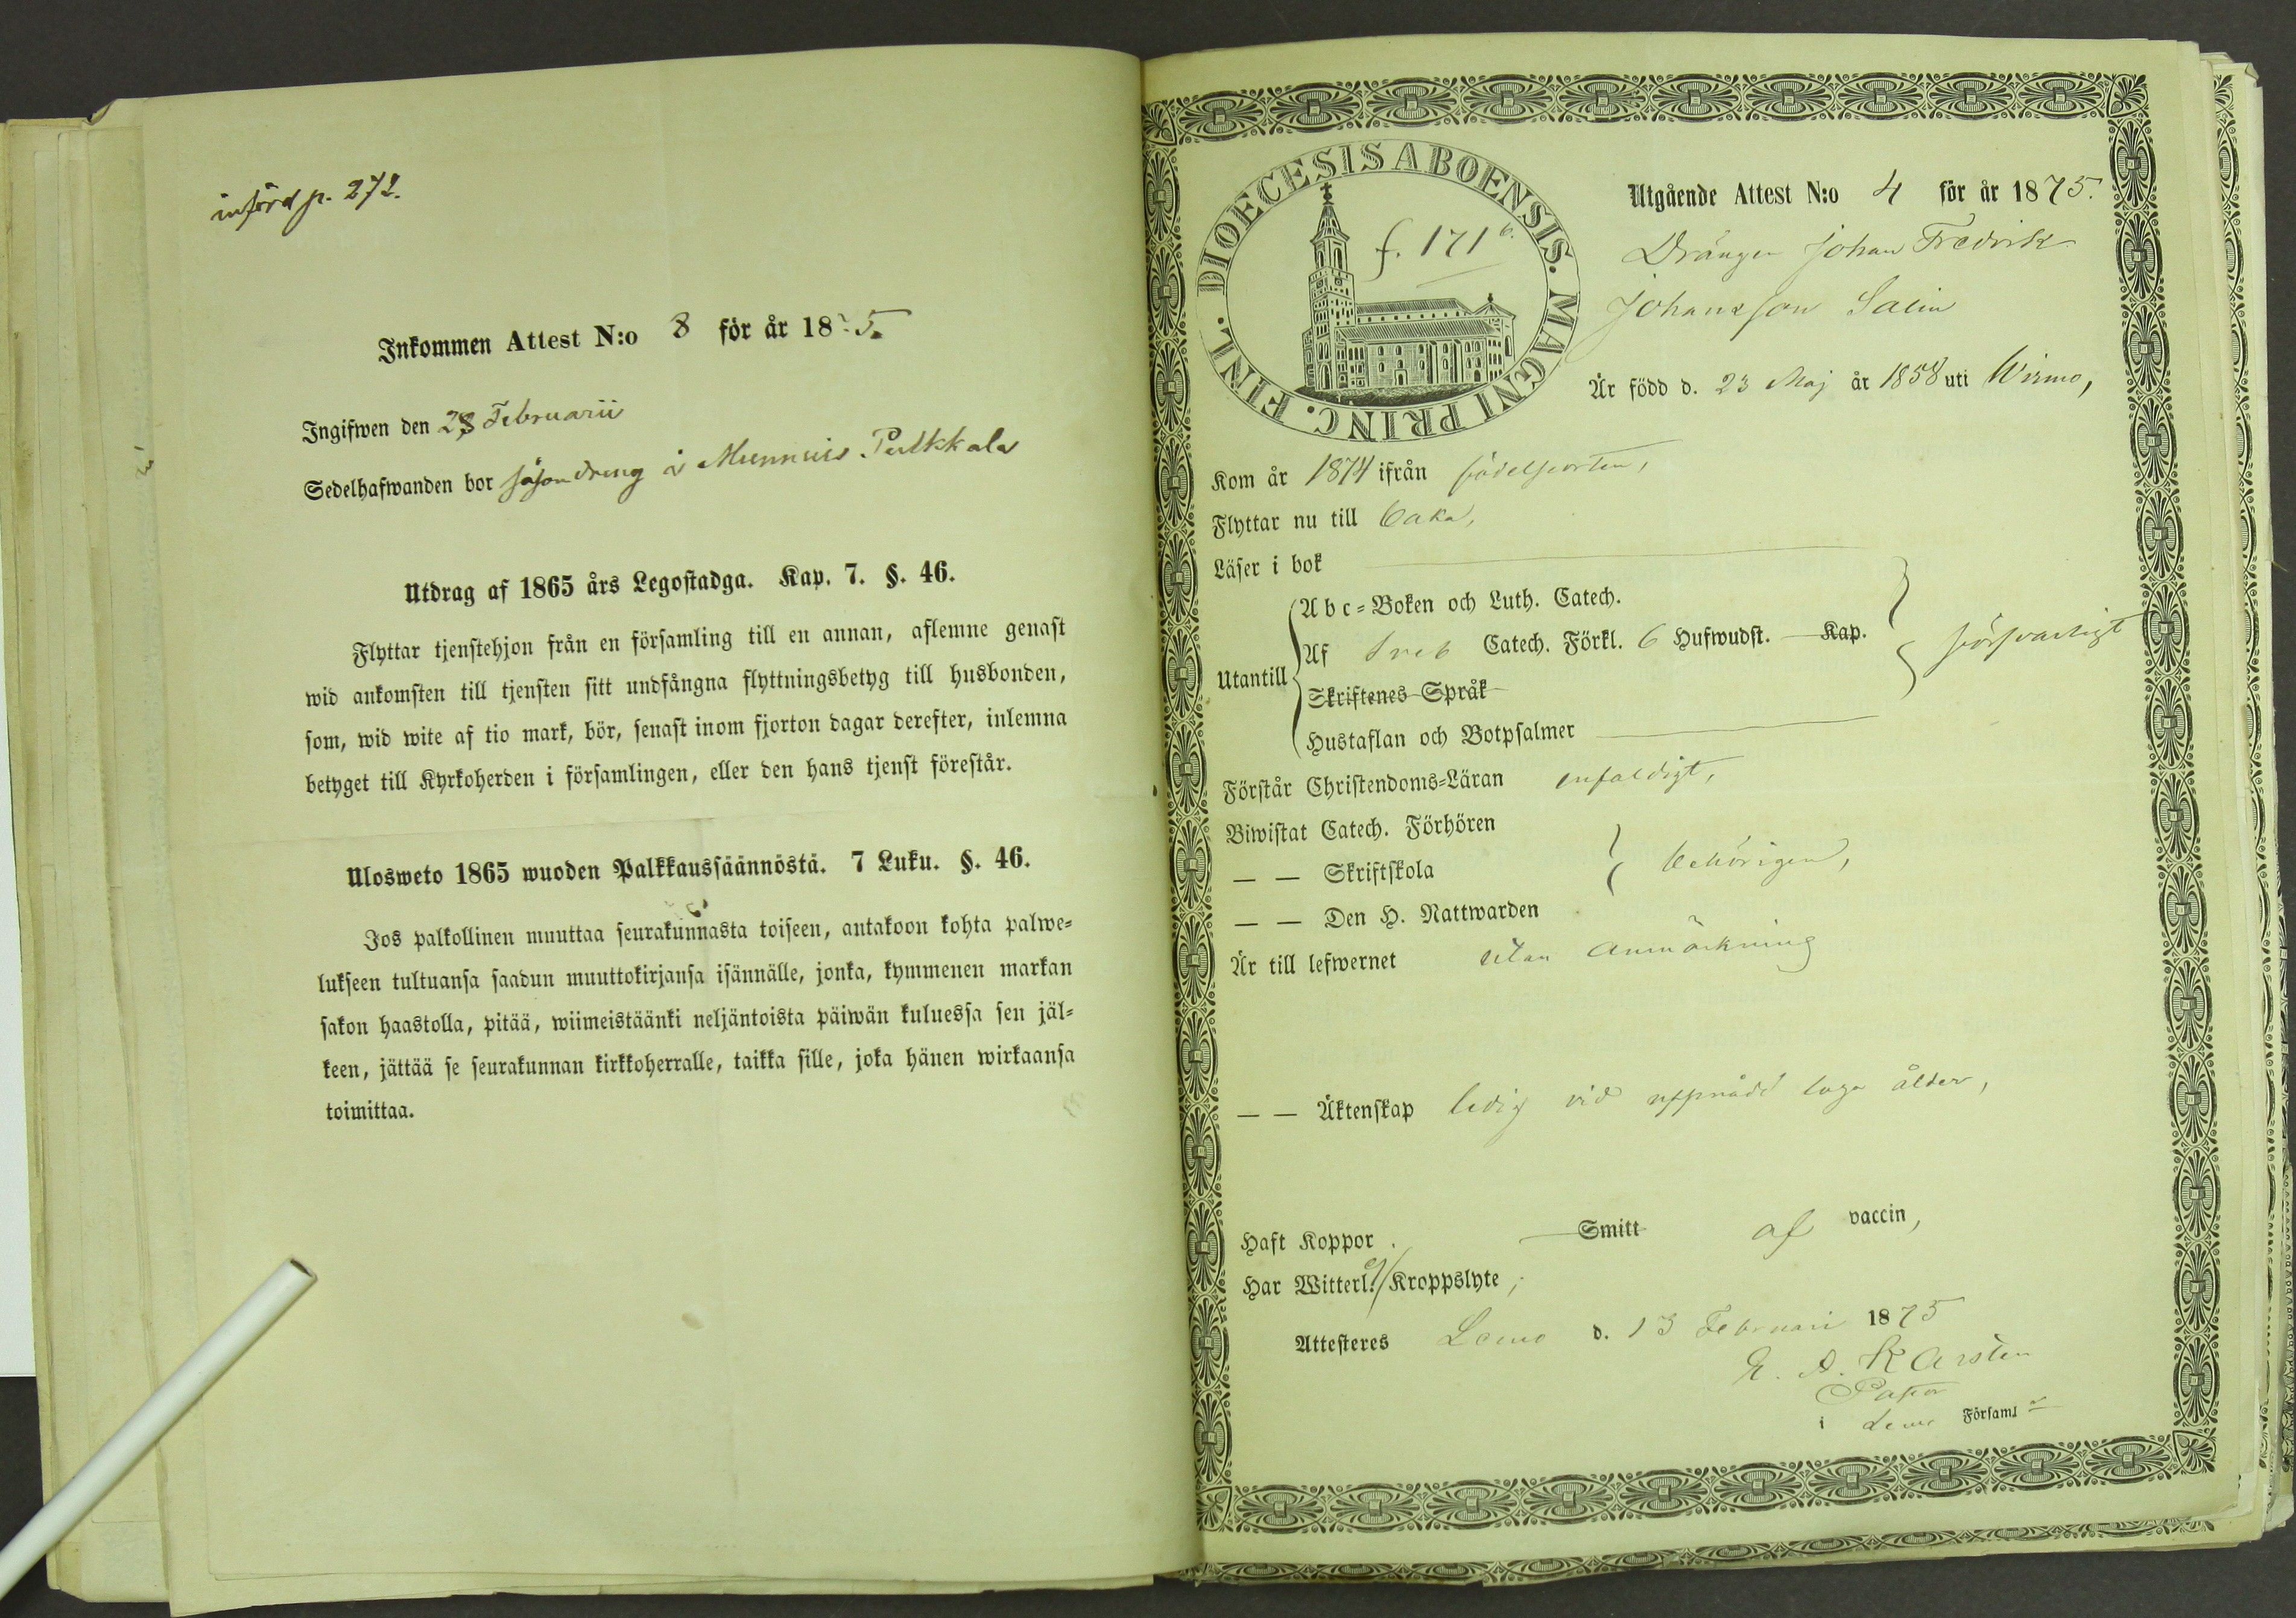 införd p. 272.
Inkommen Attest N:o 8 för år 1875.
Ingifwen den 28 Februarii
Sedelhafwanden bor såsom dreng å Munnuis Pulkkala
Utdrag af 1865 års Legostadga. Kap. 7. §. 46.
Flyttar tjenstehjon från en församling till en annan, aflemne genast
wid ankomsten till tjensten sitt undfångna flyttningsbetyg till husbonden,
som, wid wite af tio mark, bör, senast inom fjorton dagar derefter, inlemna
betyget till Kyrkoherden i församlingen, eller den hans tjenst förestår.
Ulosweto 1865 wuoden Palkkaussäännöstä. 7 Luku. §. 46.
Jos palkollinen muuttaa seurakunnasta toiseen, antakoon kohta palwe-
lukseen tultuansa saadun muuttokirjansa isännälle, jonka, kymmenen markan
sakon haastolla, pitää, wiimeistäänki neljäntoista päiwän kuluessa sen jäl-
keen, jättää se seurakunnan kirkkoherralle, taikka sille, joka hänen wirkaansa
toimittaa.
DIOECESIS ABOENSIS. MAGNI PRINC. FINL.
f. 171 b.
Utgående Attest N:o 4 för år 1875.
Drängen Johan Fredrik
Johansson Salin
Är född d. 23 Maj år 1858 uti Wirmo,
Kom år 1874 ifrån födelseorten,
Flyttar nu till
Läser i bok
Abc-Boken och Luth. Catech.
Utantill Af Sveb Catech. Förkl. 6 Hufwudst. Kap. försvarligt
Skriftenes Språk
Hustaflan och Botpsalmer
Förstår Christendoms-Läran enfaldigt,
Biwistat Catech. Förhören
— — Skriftskola behörigen,
— — Den H. Nattwarden
Är till lefwernet utan anmärkning
— — Äktenskap ledig vid uppnådd laga ålder,
Haft Koppor Smitt af vaccin,
Har Witterl. ej Kroppslyte,
Attesteres Lemo d. 13 Februari 1875
E. A. Karsten
Pastor
i Lemo Församl